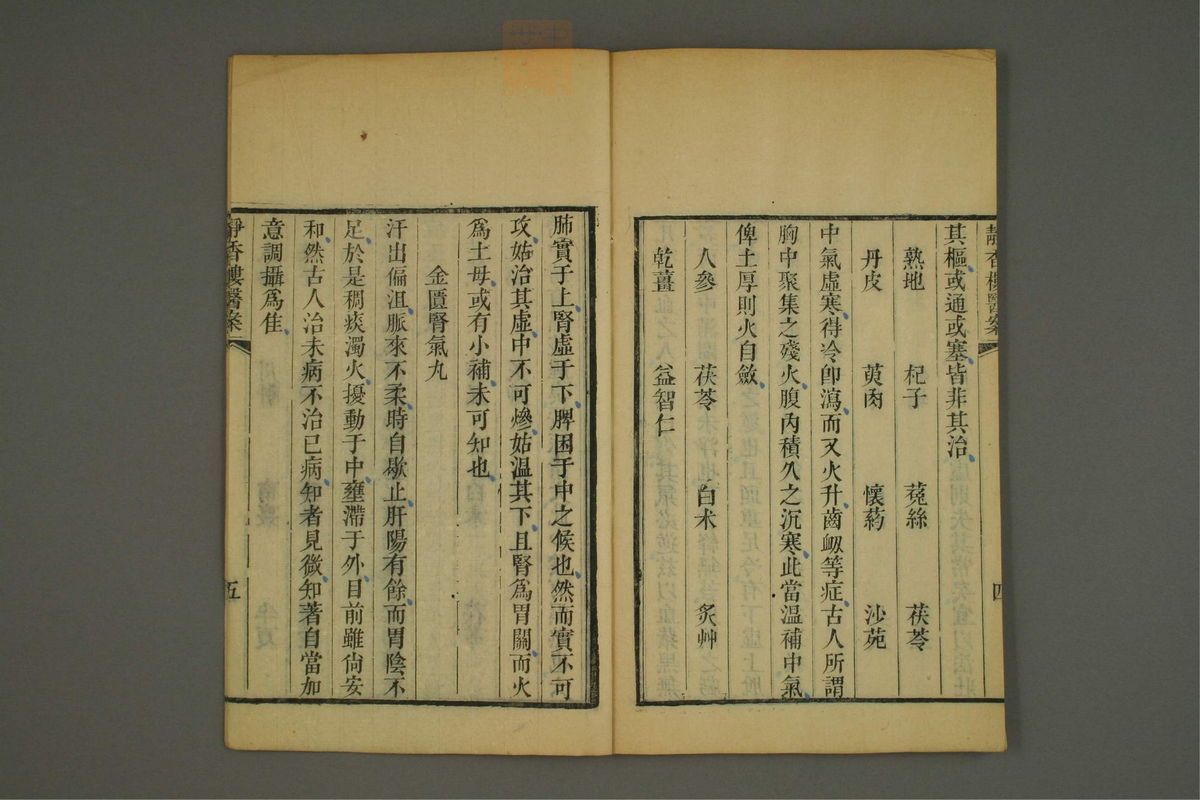 靜香樓醫案
四
其樞或通或塞皆非其治
熟地 杞子 菟絲 茯苓
丹皮 萸肉 懷葯 沙苑
中氣虛寒得冷卽瀉而又火升齒衂等症古人所謂
胸中聚集之殘火腹內積久之沉寒此當溫補中氣
俾土厚則火自斂
人參 茯苓 白朮 炙艸
乾薑 益智仁
肺實于上腎虛于下脾困于中之候也然而實不可
攻姑治其虛中不可燥姑溫其下且腎爲胃關而火
爲土母或有小補未可知也
金匱腎氣丸
汗出偏沮脈來不柔時自歇止肝陽有餘而胃陰不
足於是稠痰濁火擾動于中壅滯于外目前雖尙安
和然古人治未病不治已病知者見微知著自當加
意調攝爲隹
靜香樓醫案
五